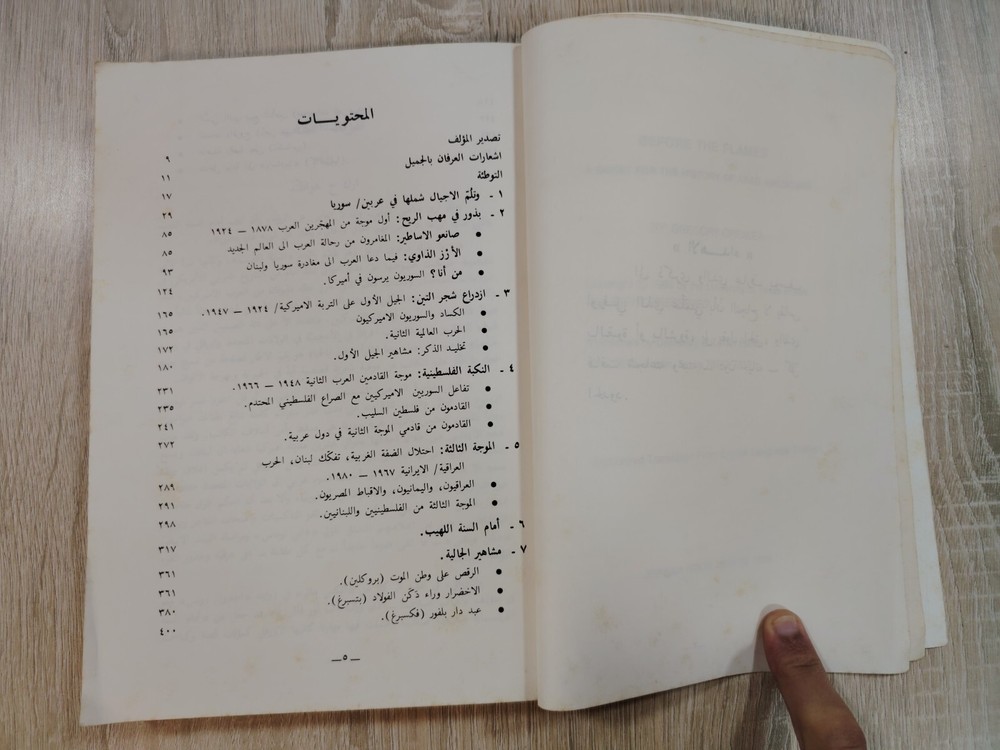 المحتويـــات
تصدير المؤلف ٩
اشعارات العرفان بالجميل ١١
التوطئة ١٧
١ ـ وتلُمّ الاجيال شملها في عربين/ سوريا ٢٩
٢ ـ بذور في مهب الريح: أول موجة من المهجّرين العرب ١٨٧٨ ـ ١٩٢٤ ٨٥
● صانعو الاساطير: المغامرون من رحالة العرب الى العالم الجديد ٨٥
● الأرْز الذاوي: فيما دعا العرب الى مغادرة سوريا ولبنان ٩٣
● من أنا؟ السوريون يرسون في أميركا. ١٢٤
٣ ـ ازدراع شجر التين: الجيل الأول على التربة الاميركية/ ١٩٢٤ ـ ١٩٤٧. ١٦٥
● الكساد والسوريون الاميركيون ١٦٥
● الحرب العالمية الثانية. ١٧٢
● تخليد الذكر: مشاهير الجيل الأول. ١٨٠
٤ ـ النكبة الفلسطينية: موجة القادمين العرب الثانية ١٩٤٨ ـ ١٩٦٦. ٢٣١
● تفاعل السوريين الاميركيين مع الصراع الفلسطيني المحتدم. ٢٣٥
● القادمون من فلسطين السليب. ٢٤١
● القادمون من قادمي الموجة الثانية في دول عربية. ٢٧٢
٥ ـ الموجة الثالثة: احتلال الضفة الغربية، تفكّك لبنان، الحرب
العراقية/ الايرانية ١٩٦٧ ـ ١٩٨٠. ٢٨٩
● العراقيون، واليمانيون، والاقباط المصريون. ٢٩١
● الموجة الثالثة من الفلسطينيين واللبنانيين. ٢٩٨
٦ ـ أمام السنة اللهيب. ٣١٧
٧ ـ مشاهير الجالية. ٣٦١
● الرقص على وطن الموت (بروكلين). ٣٦١
● الاخضرار وراء دَكَن الفولاد (بتسبرغ). ٣٨٠
● عبد دار بلفور (فكسبرغ). ٤٠٠
ـ ٥ ـ